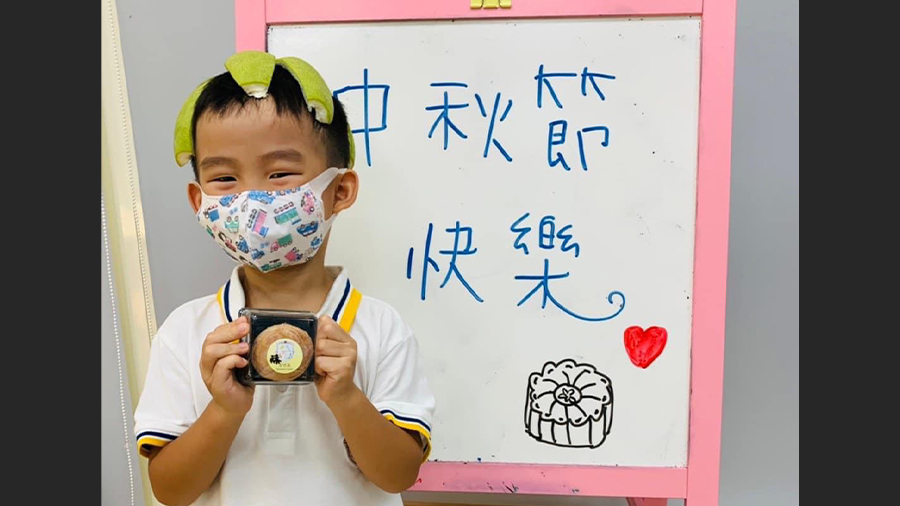 中秋節
快樂